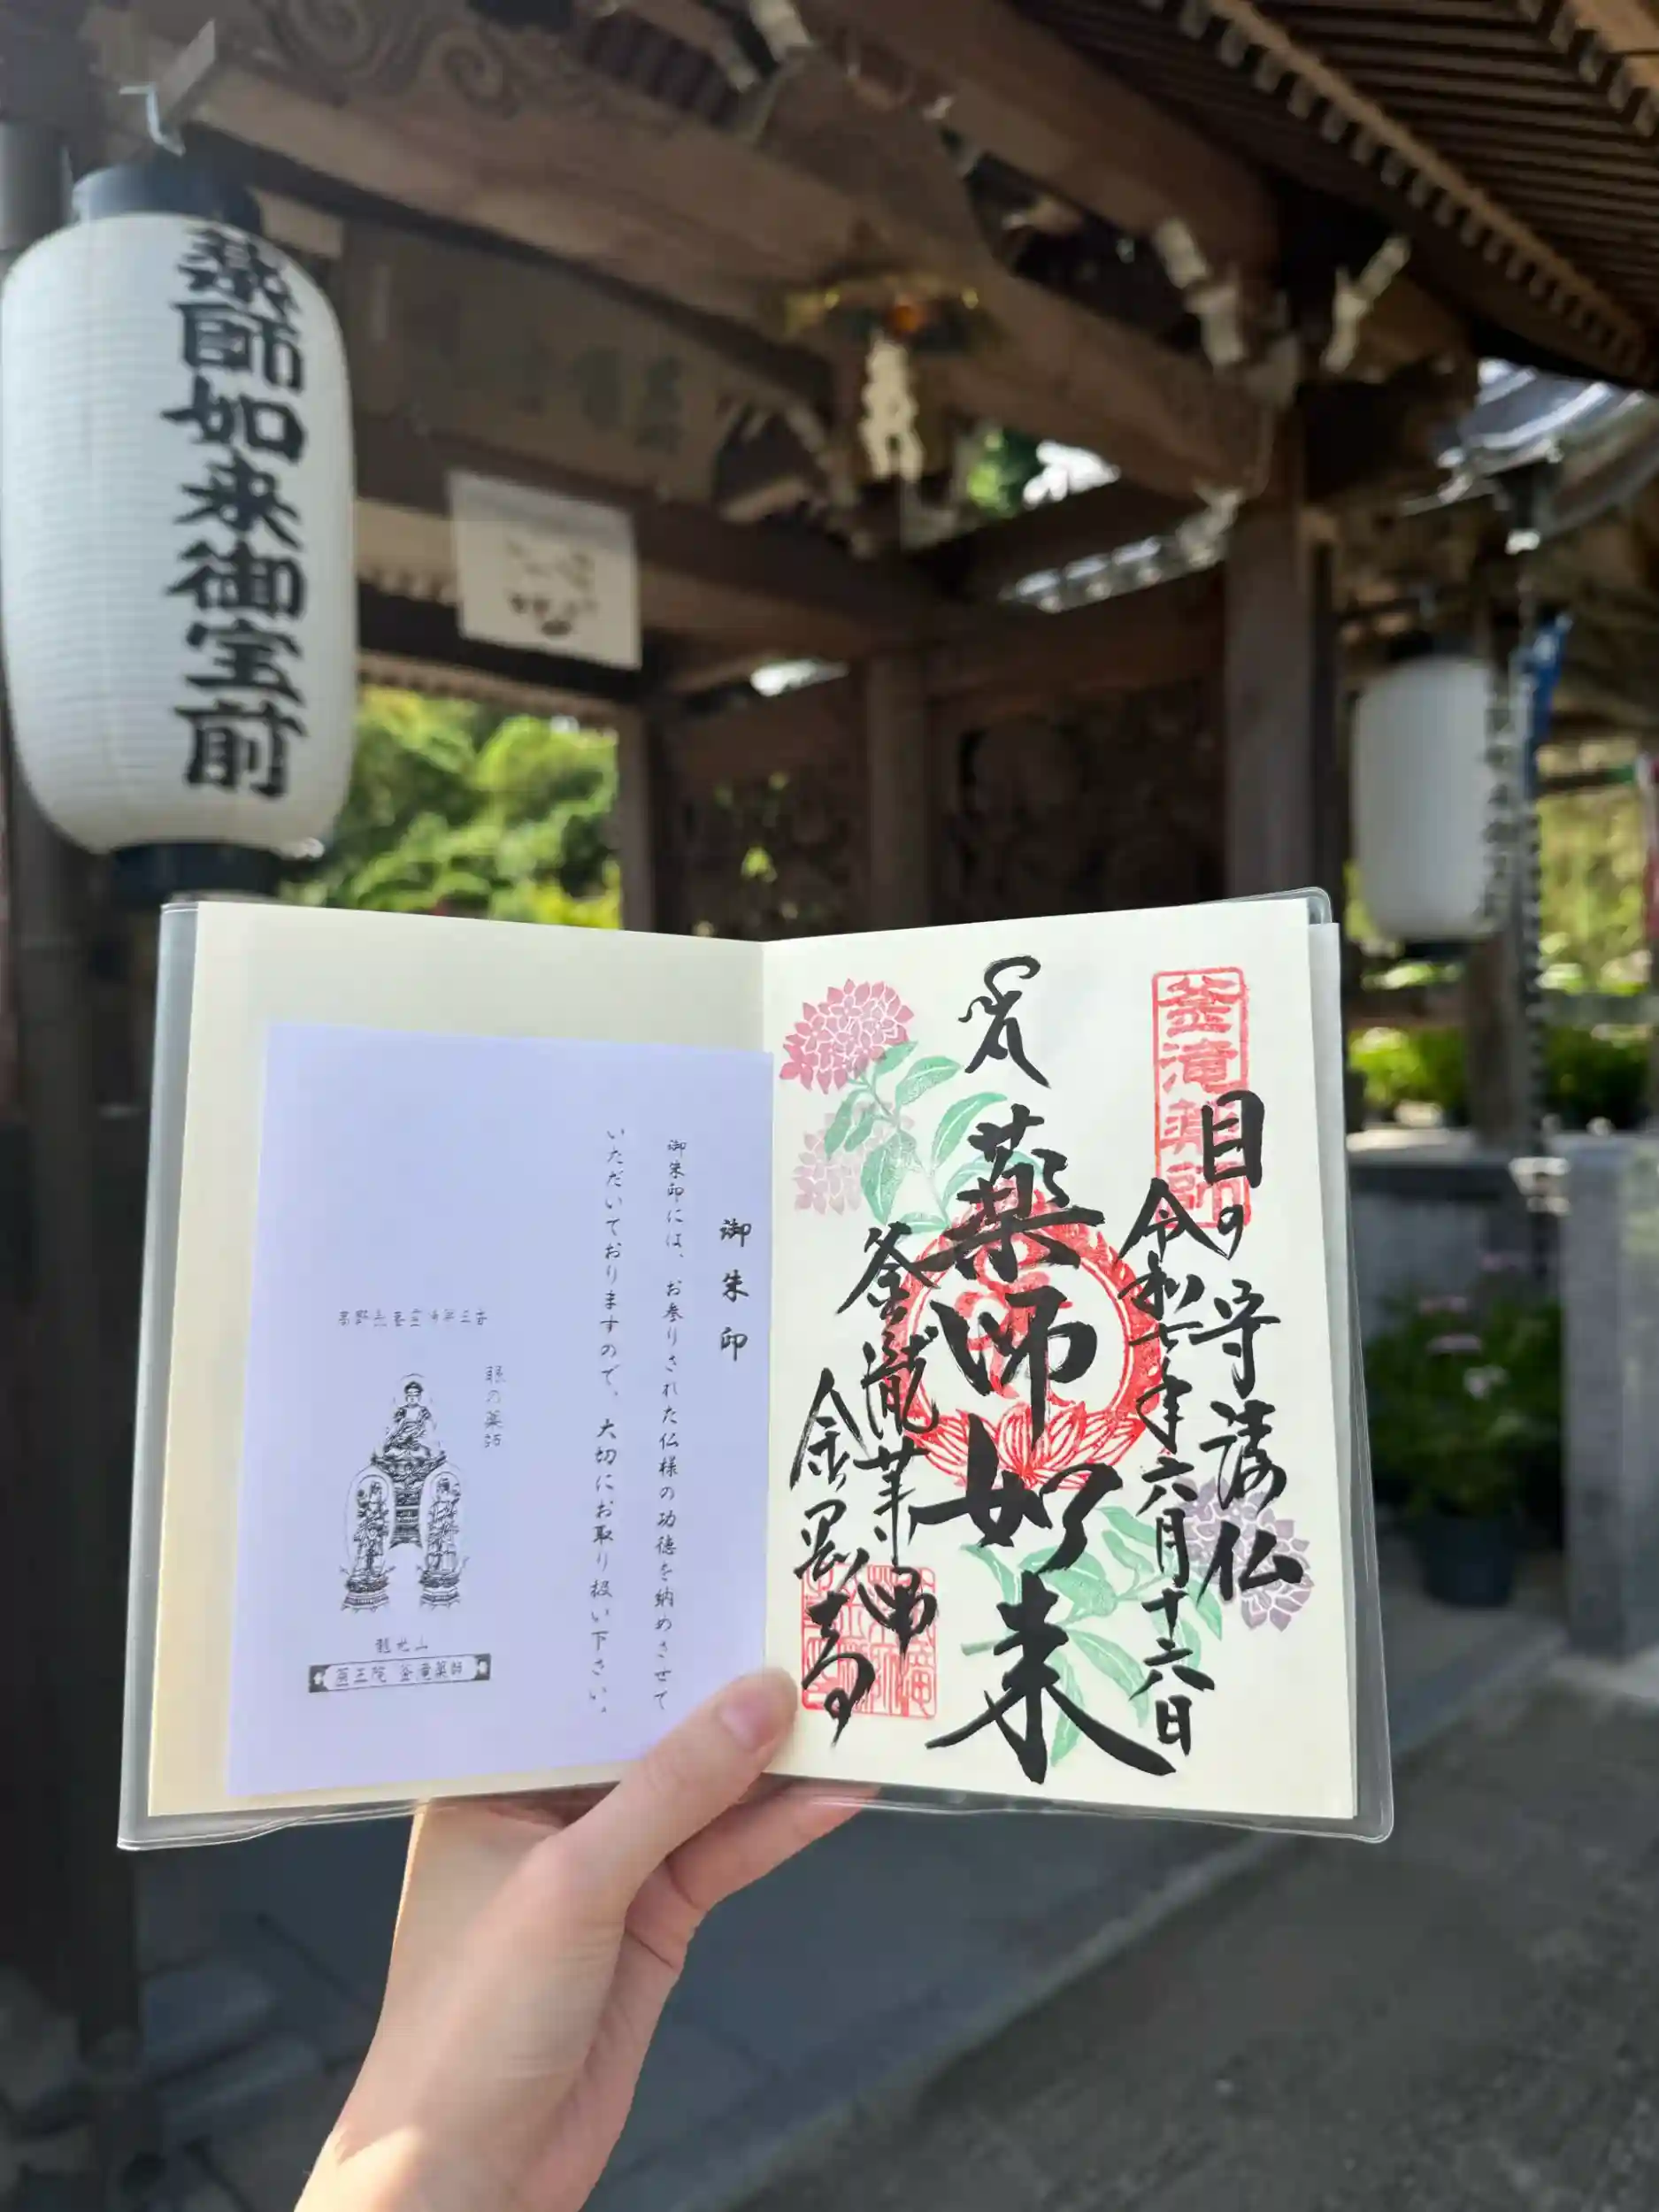 薬師如来御宝前
釜滝薬師
目の守護仏
令和七年六月十六日
薬師如来
釜瀧薬師
金剛寺
御朱印
御朱印には、お参りされた仏様の功徳を納めさせて
いただいておりますので、大切にお取り扱い下さい。
眼の薬師
龍光山
薬王院 釜滝薬師